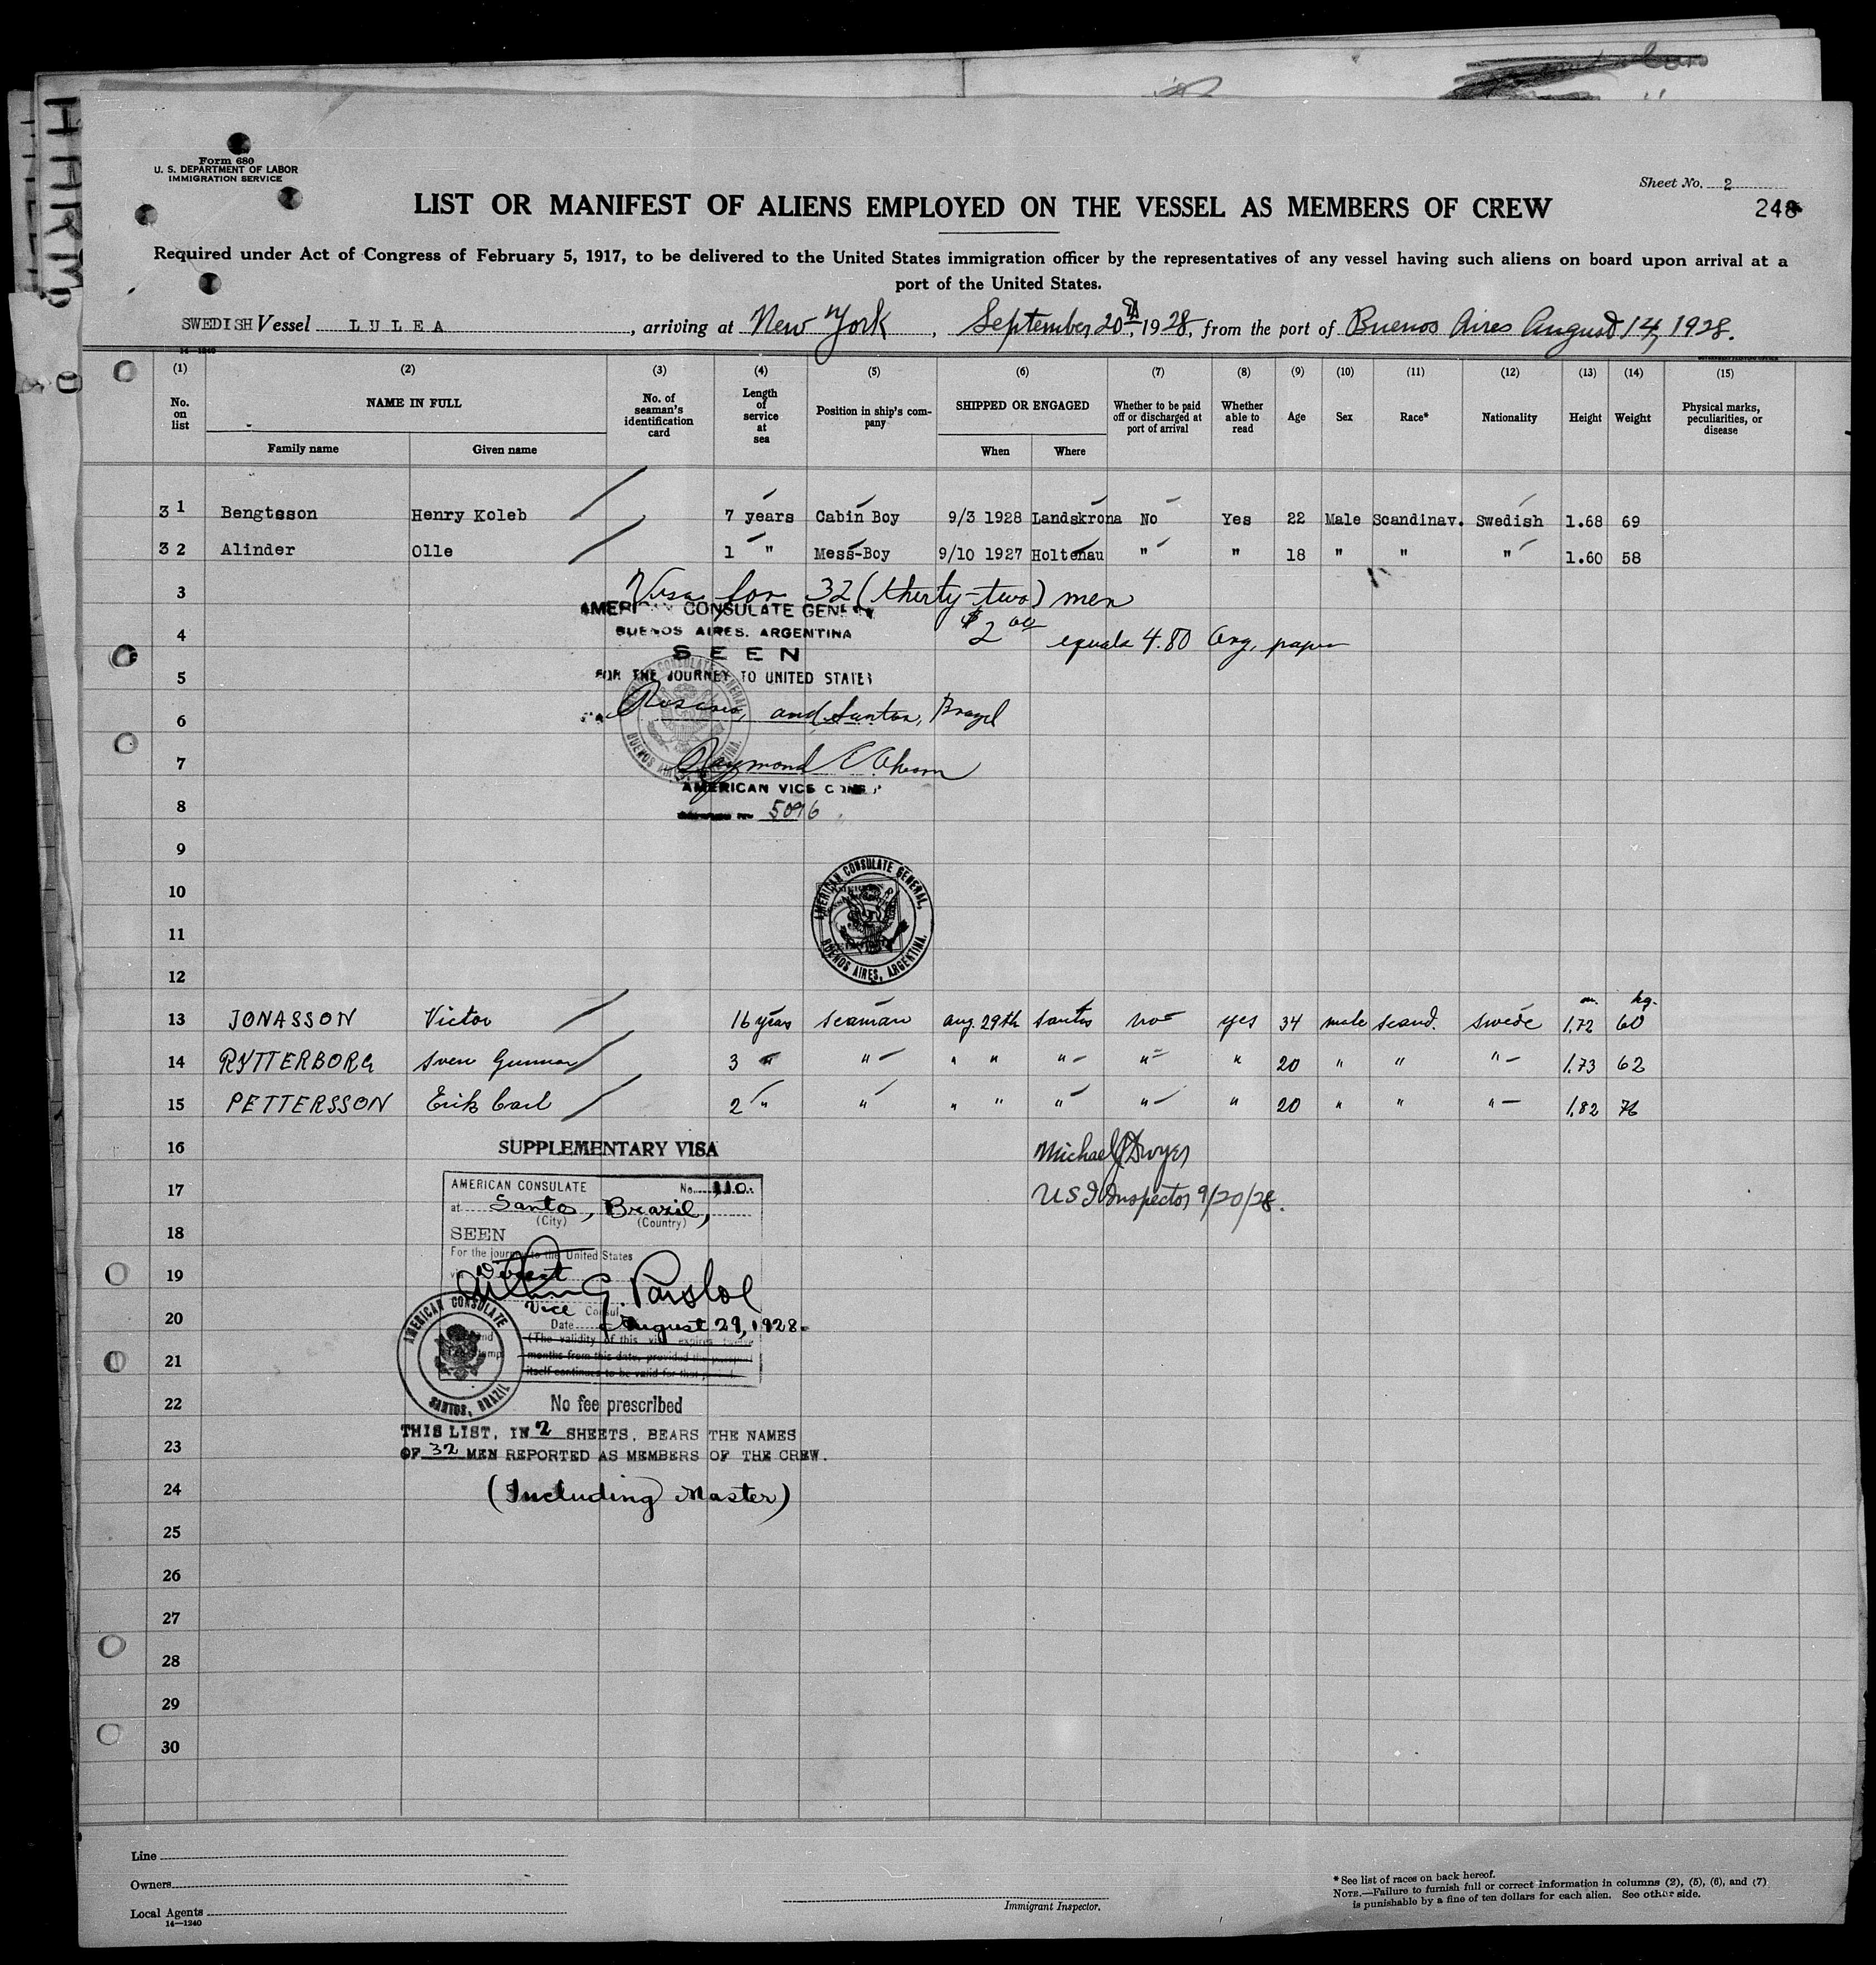 Form 680
U. S. DEPARTMENT OF LABOR
IMMIGRATION SERVICE
Sheet No. 2
LIST OR MANIFEST OF ALIENS EMPLOYED ON THE VESSEL AS MEMBERS OF CREW
248
Required under Act of Congress of February 5, 1917, to be delivered to the United States immigration officer by the representatives of any vessel having such aliens on board upon arrival at a
port of the United States.
SWEDISH Vessel LULEA, arriving at New York, September 20th, 1928, from the port of Buenos Aires August 14, 1928.
14—1240
(1) (2) (3) (4) (5) (6) (7) (8) (9) (10) (11) (12) (13) (14) (15)
No. on list NAME IN FULL No. of seaman's identification card Length of service at sea Position in ship's company SHIPPED OR ENGAGED Whether to be paid off or discharged at port of arrival Whether able to read Age Sex Race* Nationality Height Weight Physical marks, peculiarities, or disease
Family name Given name When Where
31 Bengtsson Henry Koleb 7 years Cabin Boy 9/3 1928 Landskrona No Yes 22 Male Scandinav. Swedish 1.68 69
32 Alinder Olle 1 " Mess-Boy 9/10 1927 Holtenau " " 18 " " " 1.60 58
3 Visa for 32 (thirty-two) men
AMERICAN CONSULATE GENERAL
4 BUENOS AIRES. ARGENTINA $2 00 equals 4.80 Arg. paper
SEEN
5 FOR THE JOURNEY TO UNITED STATES
6 Rosario, and Santos, Brazil
7 Raymond
AMERICAN VICE CONSUL
8 5096
9
10 AMERICAN CONSULATE GENERAL,
11 BUENOS AIRES, ARGENTINA.
12
m. kg.
13 JONASSON Victor 16 years seaman aug. 29th santos no yes 34 male scand. swede 1,72 60
14 RYTTERBORG Sven Gunnar 3 " " " " " " " 20 " " " 1,73 62
15 PETTERSSON Erik Carl 2 " " " " " " " 20 " " " 1,82 76
16 SUPPLEMENTARY VISA Michael J Dwyer
17 AMERICAN CONSULATE No. 110. U S I Inspector 9/20/28.
at Santos, Brazil,
(City) (Country)
18 SEEN
For the journey to the United States
19 Direct
G. Parsloe
Vice Consul
20 Date August 29, 1928.
(The validity of this visa expires twelve
21 months from this date, provided the passport
itself continues to be valid for that period.
AMERICAN CONSULATE
SANTOS, BRAZIL
22 No fee prescribed
THIS LIST, IN 2 SHEETS, BEARS THE NAMES
23 OF 32 MEN REPORTED AS MEMBERS OF THE CREW.
24 (Including Master)
25
26
27
28
29
30
Line
Owners
Local Agents
14—1240
Immigrant Inspector.
* See list of races on back hereof.
NOTE.—Failure to furnish full or correct information in columns (2), (5), (6), and (7)
is punishable by a fine of ten dollars for each alien. See other side.